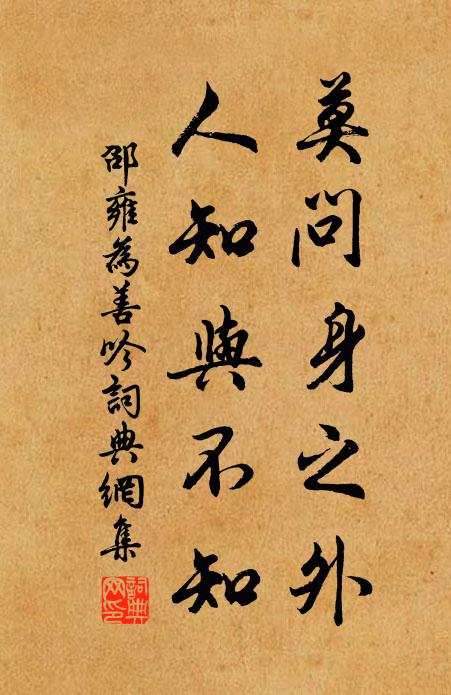 莫問身之外
人知與不知
邵雍為善吟詞典網集
詞典网印